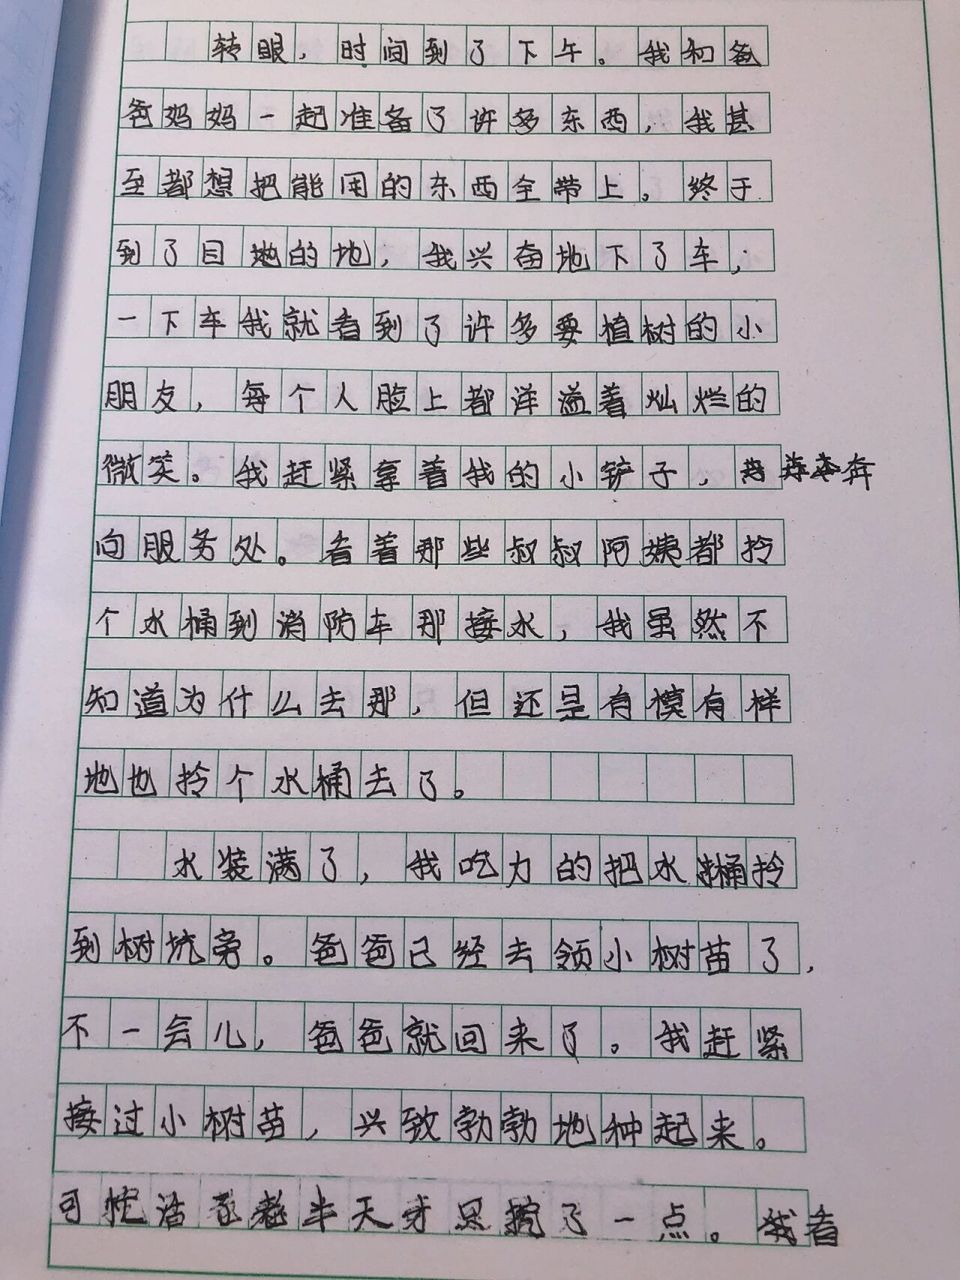 转眼，时间到了下午。我和爸
爸妈妈一起准备了许多东西，我甚
至都想把能用的东西全带上。终于
到了目地的地，我兴奋地下了车，
一下车我就看到了许多要植树的小
朋友，每个人脸上都洋溢着灿烂的
微笑。我赶紧拿着我的小铲子，奔
向服务处。看着那些叔叔阿姨都拎
个水桶到消防车那接水，我虽然不
知道为什么去那，但还是有模有样
地也拎个水桶去了。
水装满了，我吃力的把水桶拎
到树坑旁。爸爸已经去领小树苗了，
不一会儿，爸爸就回来了。我赶紧
接过小树苗，兴致勃勃地种起来。
可忙活半天才挖了一点。我看